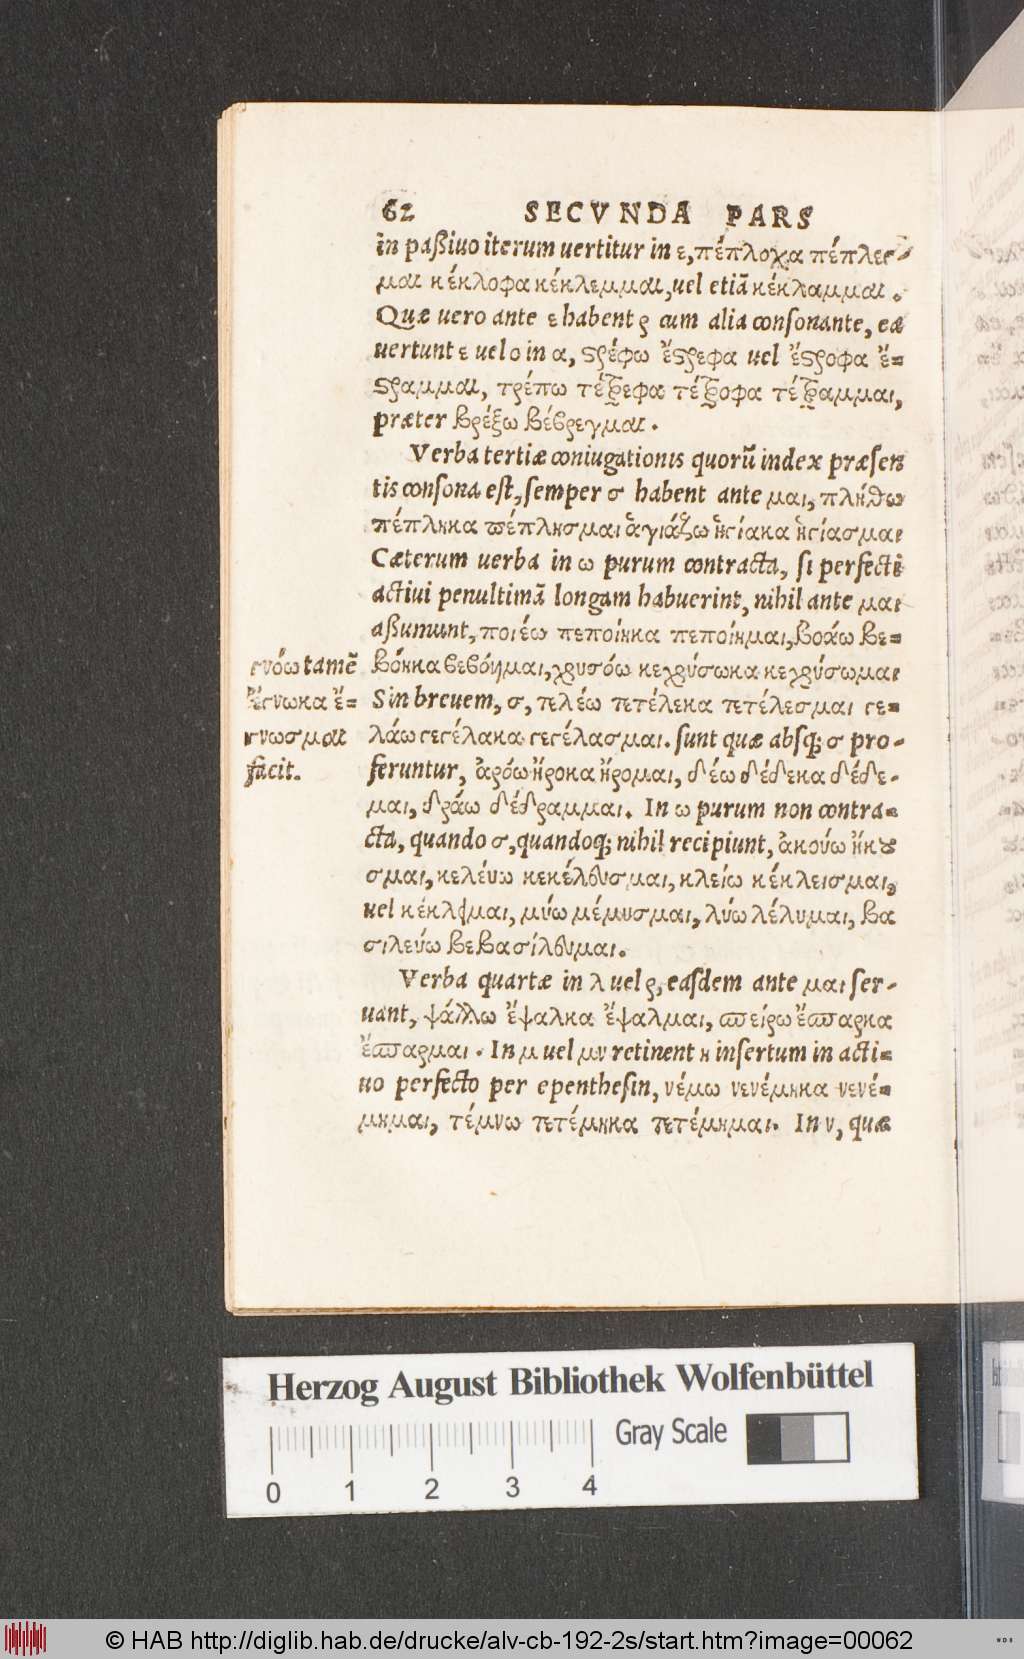 62 SECVNDA PARS
in paßiuo iterum uertitur in ε, πέπλοχα πέπλεγ-
μαι κέκλοφα κέκλεμμαι, uel etiã κέκλαμμαι.
Quæ uero ante ε habent ρ cum alia consonante, eæ
uertunt ε uel ο in α, ϛρέφω ἔϛρεφα uel ἔϛροφα ἔ=
ϛραμμαι, τρέπω τέτρεφα τέτροφα τέτραμμαι,
præter βρέξω βέβρεγμαι.
Verba tertiæ coniugationis quorũ index præsen
tis consona est, semper σ habent ante μαι, πλήθω
πέπληκα πέπλησμαι ἁγιάζω ἡγίακα ἡγίασμαι
Cæterum uerba in ω purum contracta, si perfecti
actiui penultimã longam habuerint, nihil ante μαι
aßumunt, ποιέω πεποίηκα πεποίημαι, βοάω βε=
βόηκα βεβόημαι, χρυσόω κεχρύσωκα κεχρύσωμαι
Sin breuem, σ, τελέω τετέλεκα τετέλεσμαι γε=
λάω γεγέλακα γεγέλασμαι. sunt quæ absq; σ pro-
feruntur, ἀρόω ἤροκα ἤρομαι, δέω δέδεκα δέδε-
μαι, δράω δέδραμμαι. In ω purum non contra=
cta, quando σ, quandoq; nihil recipiunt, ἀκούω ἤκȣ
σμαι, κελέυω κεκέλευσμαι, κλείω κέκλεισμαι,
uel κέκλῃμαι, μύω μέμυσμαι, λύω λέλυμαι, βα
σιλεύω βεβασίλευμαι.
Verba quartæ in λ uel ρ, easdem ante μαι ser-
uant, ψάλλω ἔψαλκα ἔψαλμαι, σπείρω ἔσπαρκα
ἔσπαρμαι. In μ uel μν retinent η insertum in acti=
uo perfecto per epenthesin, νέμω νενέμηκα νενέ=
μημαι, τέμνω τετέμηκα τετέμημαι. In ν, quæ
γνόω tamẽ
ἔγνωκα ἔ=
γνωσμαι
facit.
Herzog August Bibliothek Wolfenbüttel
Gray Scale
0 1 2 3 4
© HAB http://diglib.hab.de/drucke/alv-cb-192-2s/start.htm?image=00062